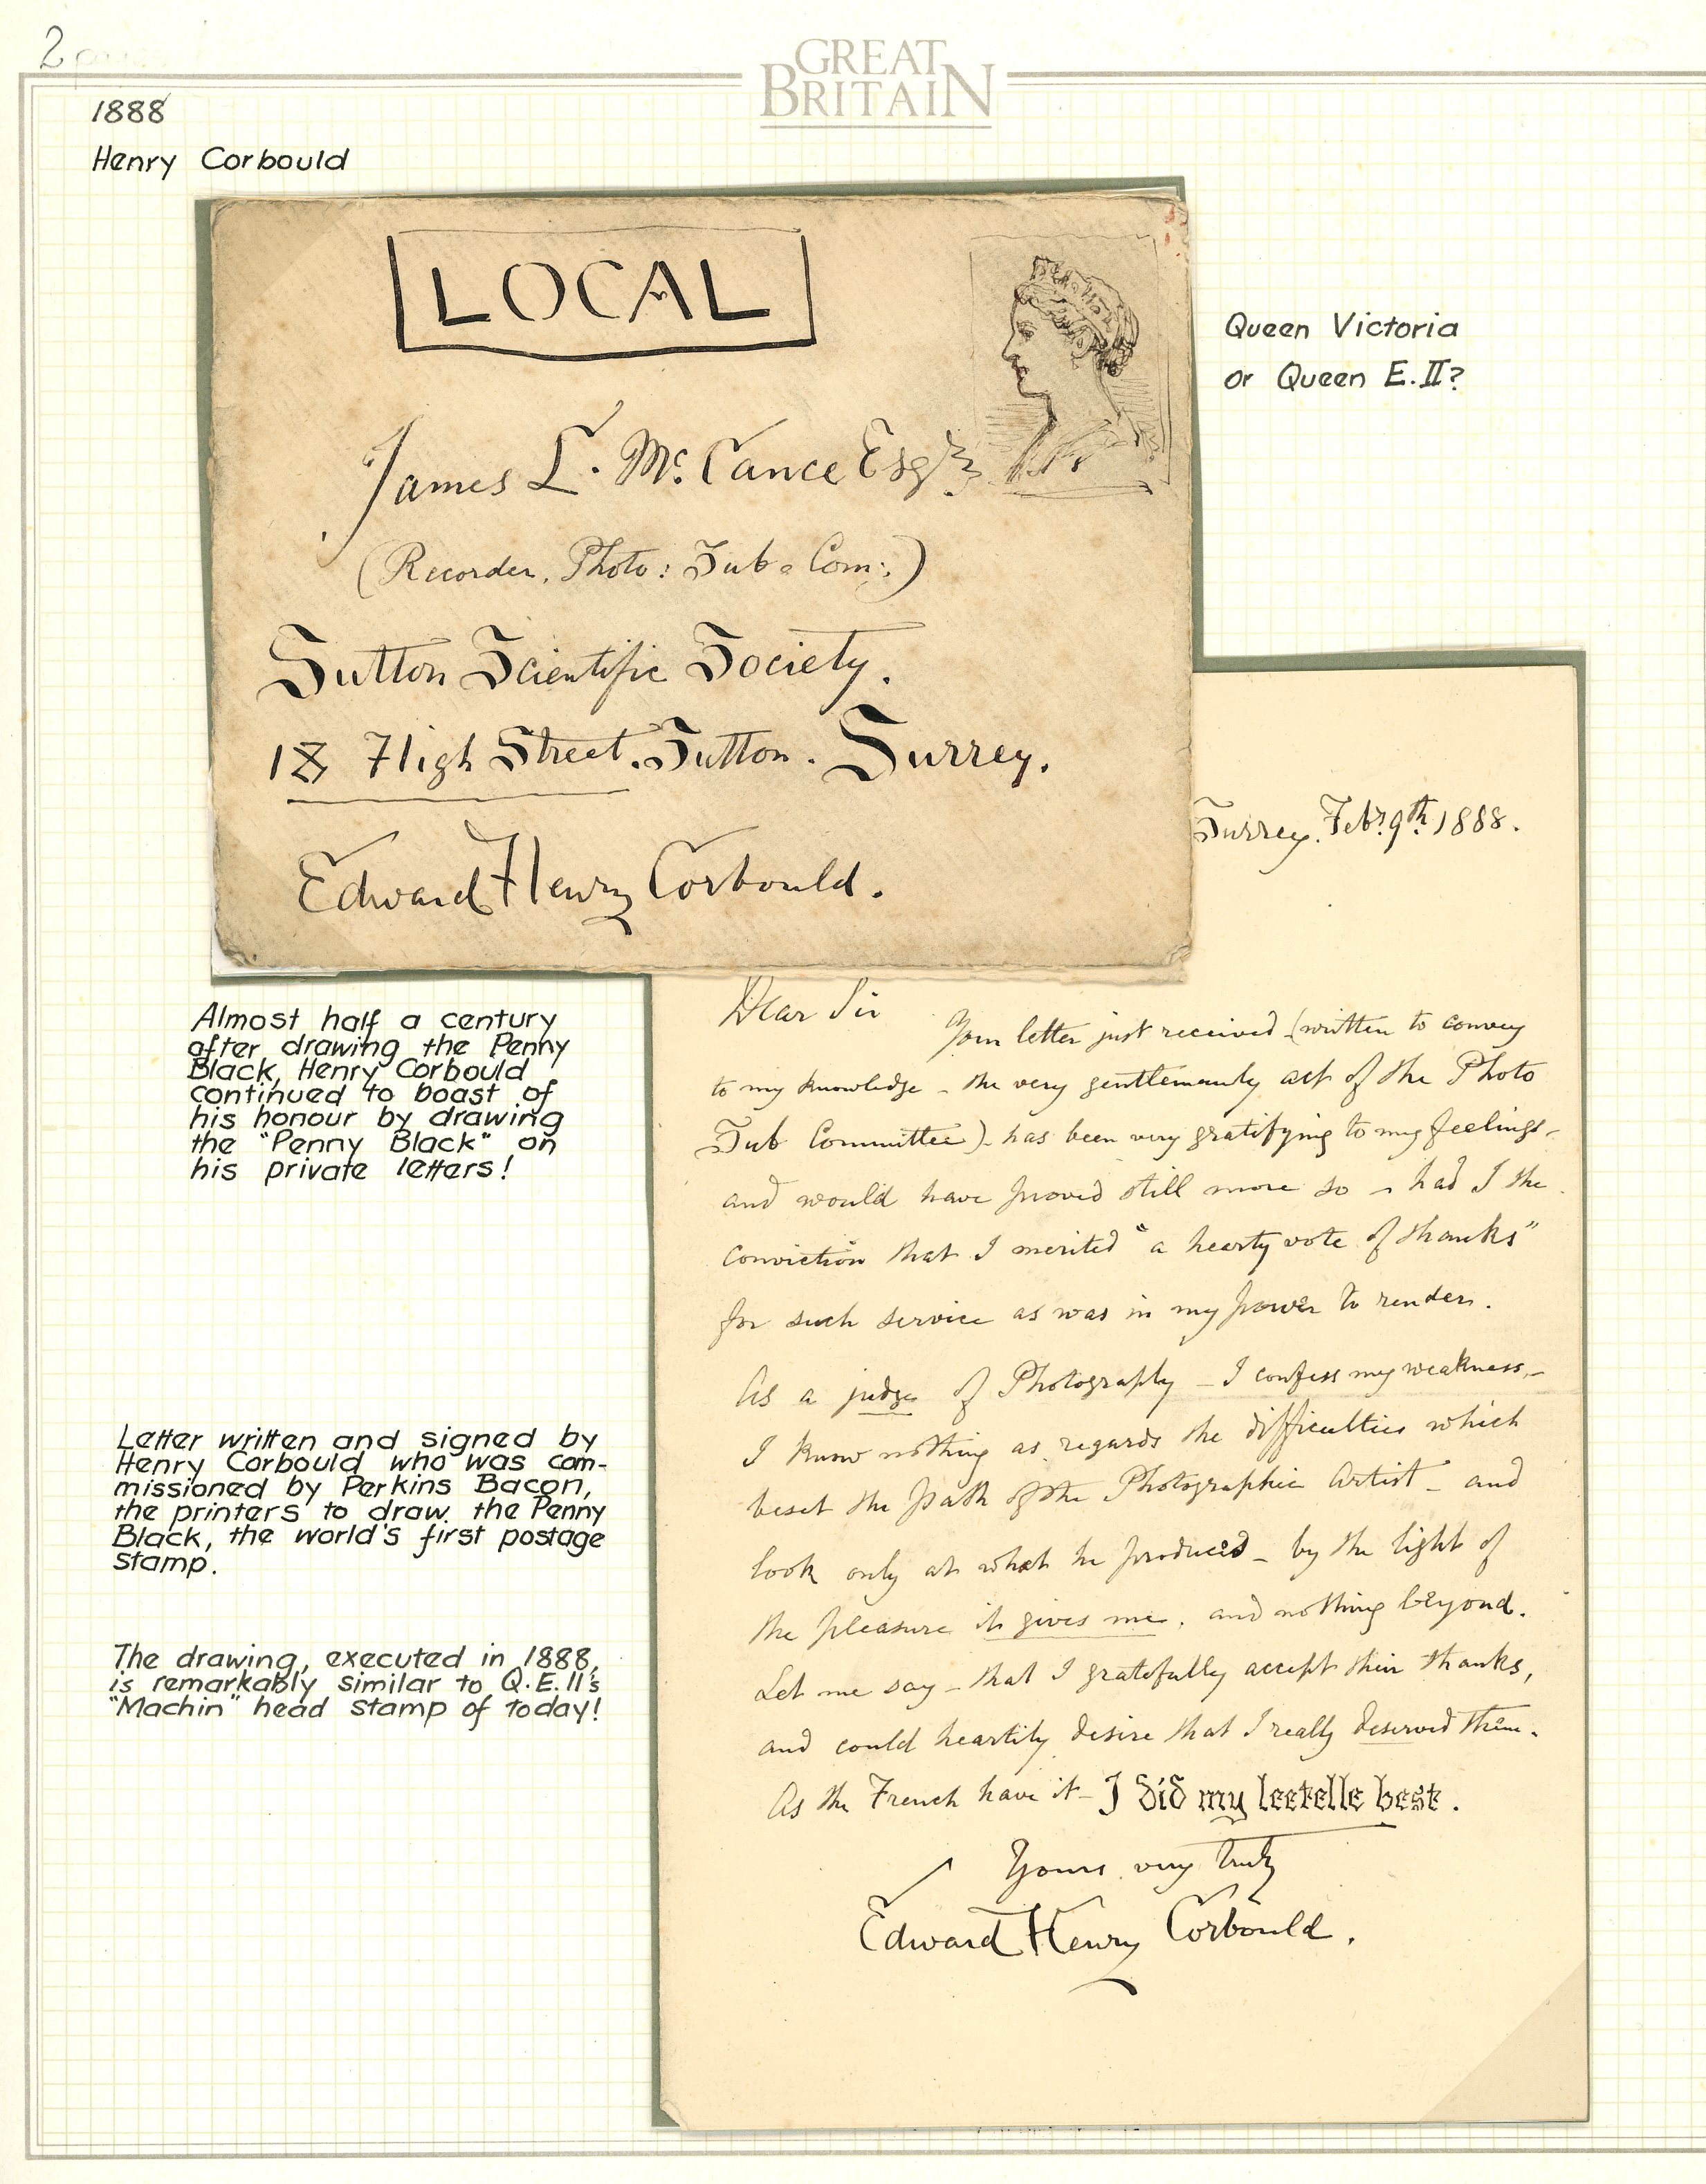 2
GREAT
BRITAIN
1888
Henry Corbould
LOCAL
James L. Mc. Cance Esqre
(Recorder. Photo: Sub = Com:)
Sutton Scientific Society.
18 High Street. Sutton. Surrey.
Edward Henry Corbould.
Queen Victoria
or Queen E.II?
Almost half a century
after drawing the Penny
Black, Henry Corbould
continued to boast of
his honour by drawing
the "Penny Black" on
his private letters!
Letter written and signed by
Henry Corbould who was com-
missioned by Perkins Bacon,
the printers to draw the Penny
Black, the world's first postage
stamp.
The drawing, executed in 1888,
is remarkably similar to Q.E.II's
"Machin" head stamp of today!
Surrey. Feby. 9th. 1888.
Dear Sir
Your letter just received (written to convey
to my knowledge - the very gentlemanly act of the Photo
Sub Committee) - has been very gratifying to my feelings -
and would have proved still more so - had I the
conviction that I merited "a hearty vote of thanks"
for such service as was in my power to render.
As a judge of Photography - I confess my weakness, -
I know nothing as regards the difficulties which
beset the path of the Photographic Artist - and
look only at what he produces - by the light of
the pleasure it gives me. and nothing beyond.
Let me say - that I gratefully accept their thanks,
and could heartily desire that I really deserved them.
As the French have it - I did my leetelle best.
Yours very truly
Edward Henry Corbould.